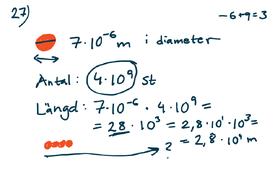 27)
-6+9=3
7·10⁻⁶ m i diameter
Antal: 4·10⁹ st
Längd: 7·10⁻⁶ · 4·10⁹ =
= 28·10³ = 2,8·10¹·10³ =
= 2,8·10⁴ m
?